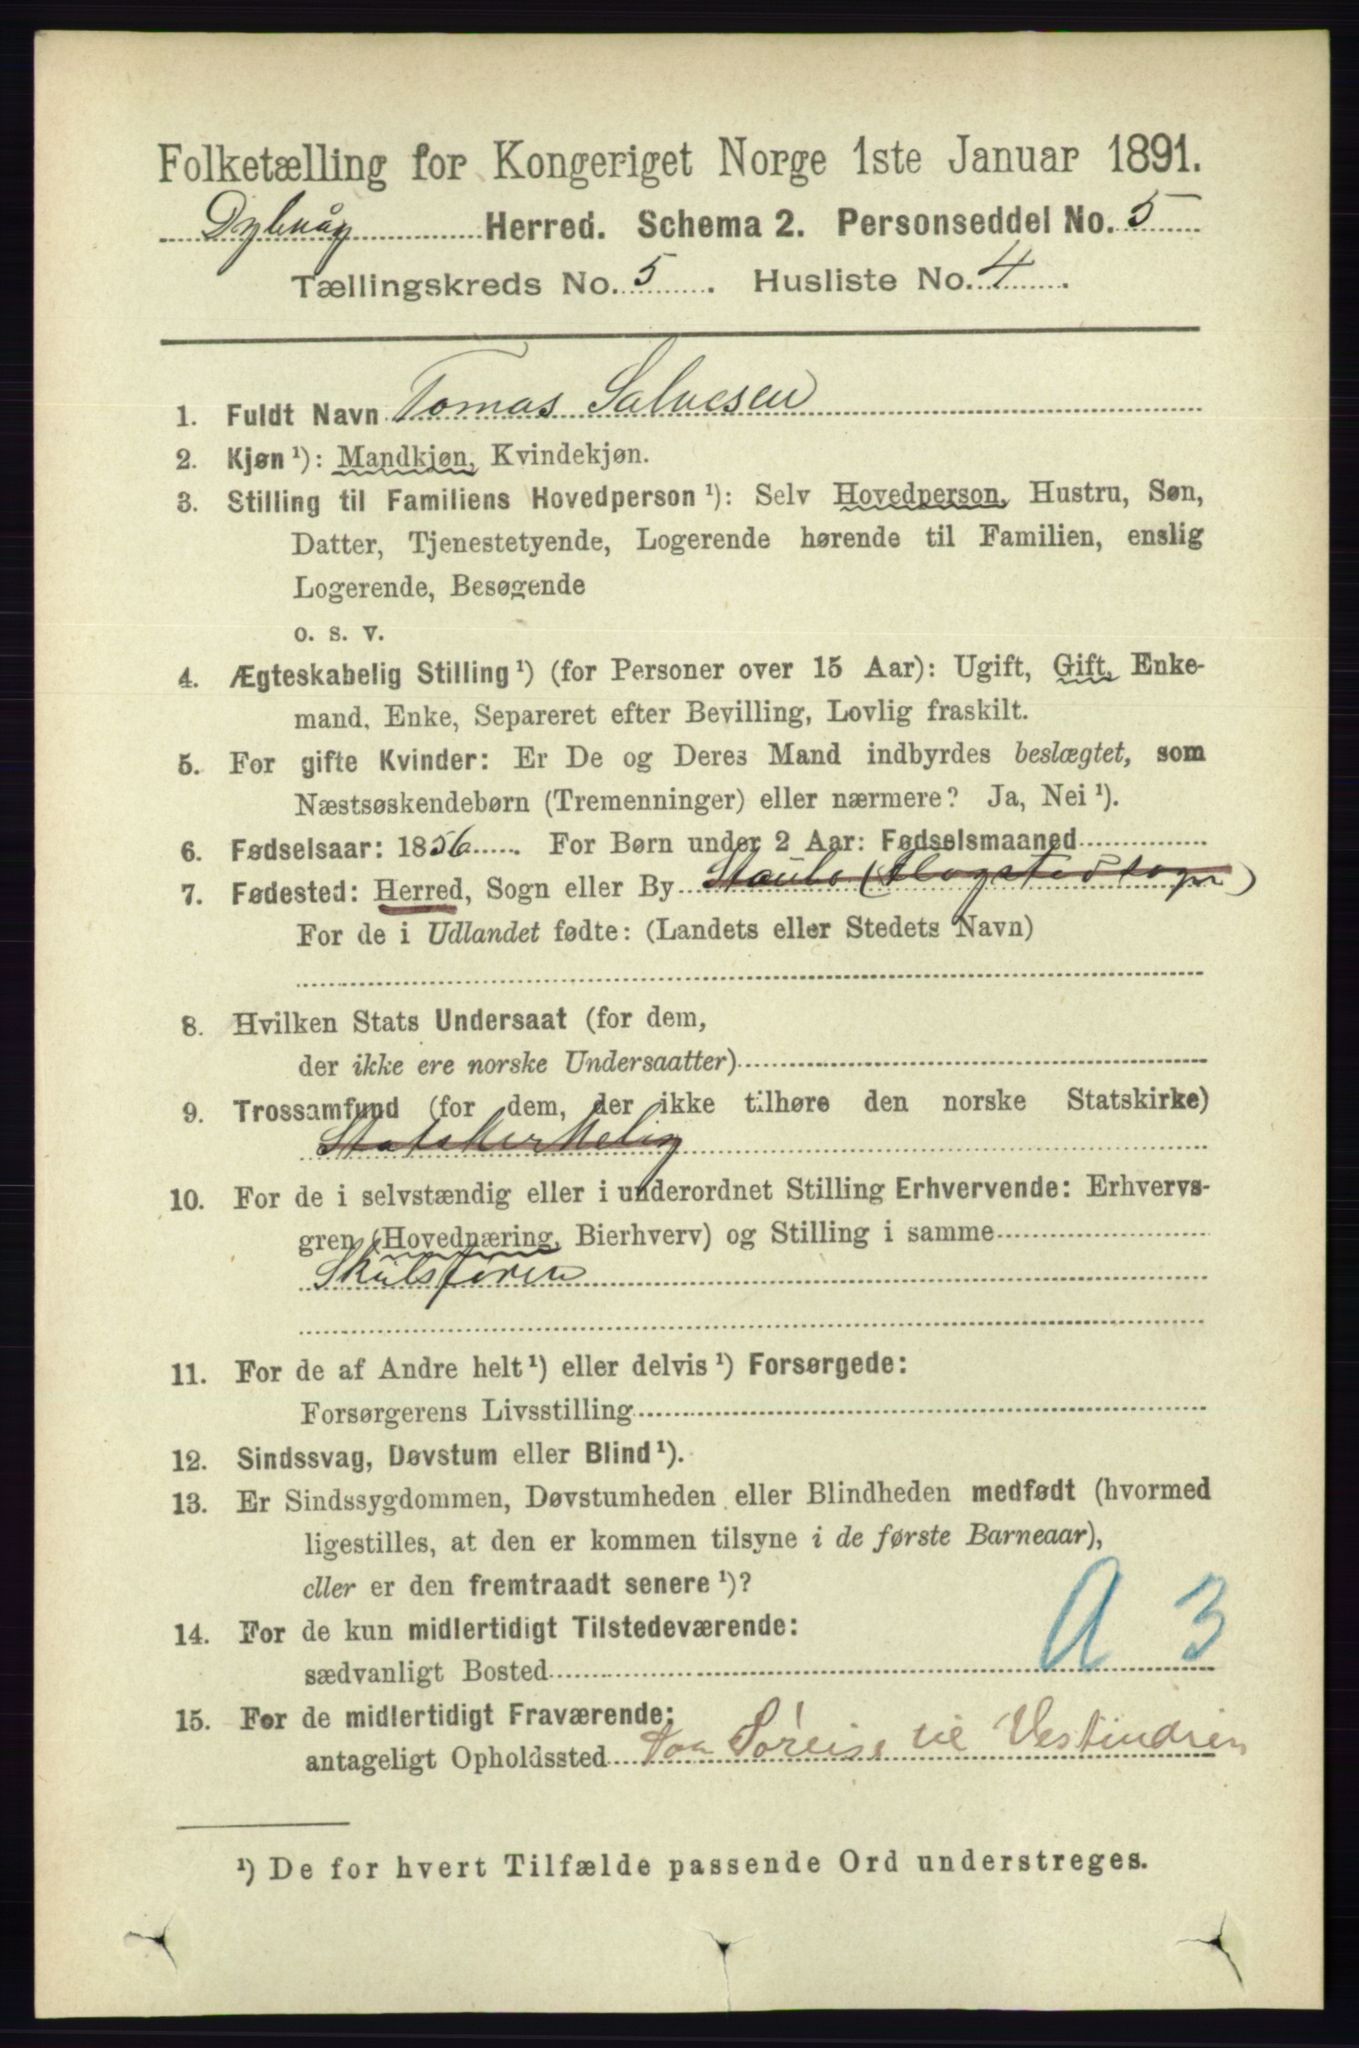 Folketælling for Kongeriget Norge 1ste Januar 1891.
Dybvåg Herred. Schema 2. Personseddel No. 5
Tællingskreds No. 5. Husliste No. 4.
1. Fuldt Navn Tomas Salvesen
2. Kjøn ¹): Mandkjøn, Kvindekjøn.
3. Stilling til Familiens Hovedperson ¹): Selv Hovedperson, Hustru, Søn,
Datter, Tjenestetyende, Logerende hørende til Familien, enslig
Logerende, Besøgende
o. s. v.
4. Ægteskabelig Stilling ¹) (for Personer over 15 Aar): Ugift, Gift, Enke-
mand, Enke, Separeret efter Bevilling, Lovlig fraskilt.
5. For gifte Kvinder: Er De og Deres Mand indbyrdes beslægtet, som
Næstsøskendebørn (Tremenninger) eller nærmere? Ja, Nei ¹).
6. Fødselsaar: 1856. For Børn under 2 Aar: Fødselsmaaned
7. Fødested: Herred, Sogn eller By Staubo (Flagstad sogn)
For de i Udlandet fødte: (Landets eller Stedets Navn)
8. Hvilken Stats Undersaat (for dem,
der ikke ere norske Undersaatter)
9. Trossamfund (for dem, der ikke tilhøre den norske Statskirke)
Statskirkelig
10. For de i selvstændig eller i underordnet Stilling Erhvervende: Erhvervs-
gren (Hovednæring, Bierhverv) og Stilling i samme
Skibsfører
11. For de af Andre helt ¹) eller delvis ¹) Forsørgede:
Forsørgerens Livsstilling
12. Sindssvag, Døvstum eller Blind ¹).
13. Er Sindssygdommen, Døvstumheden eller Blindheden medfødt (hvormed
ligestilles, at den er kommen tilsyne i de første Barneaar),
eller er den fremtraadt senere ¹)?
A 3
14. For de kun midlertidigt Tilstedeværende:
sædvanligt Bosted
15. For de midlertidigt Fraværende:
antageligt Opholdssted Paa Søreise til Vestindien
¹) De for hvert Tilfælde passende Ord understreges.